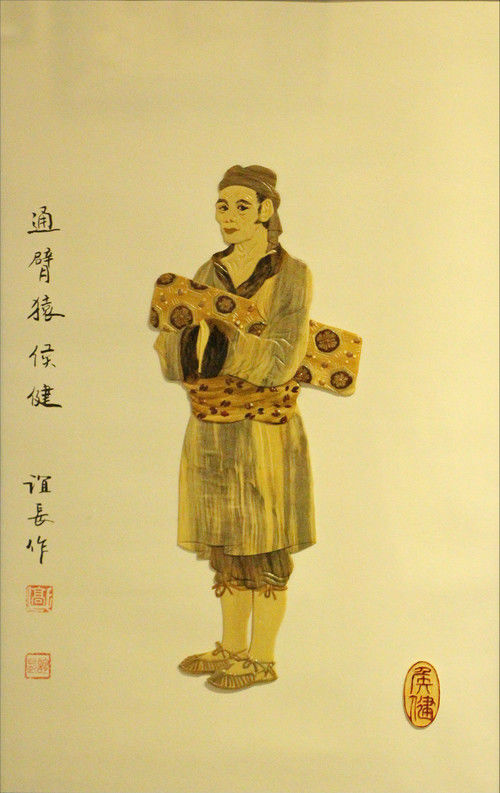 通臂猿侯健 谊長作
侯健